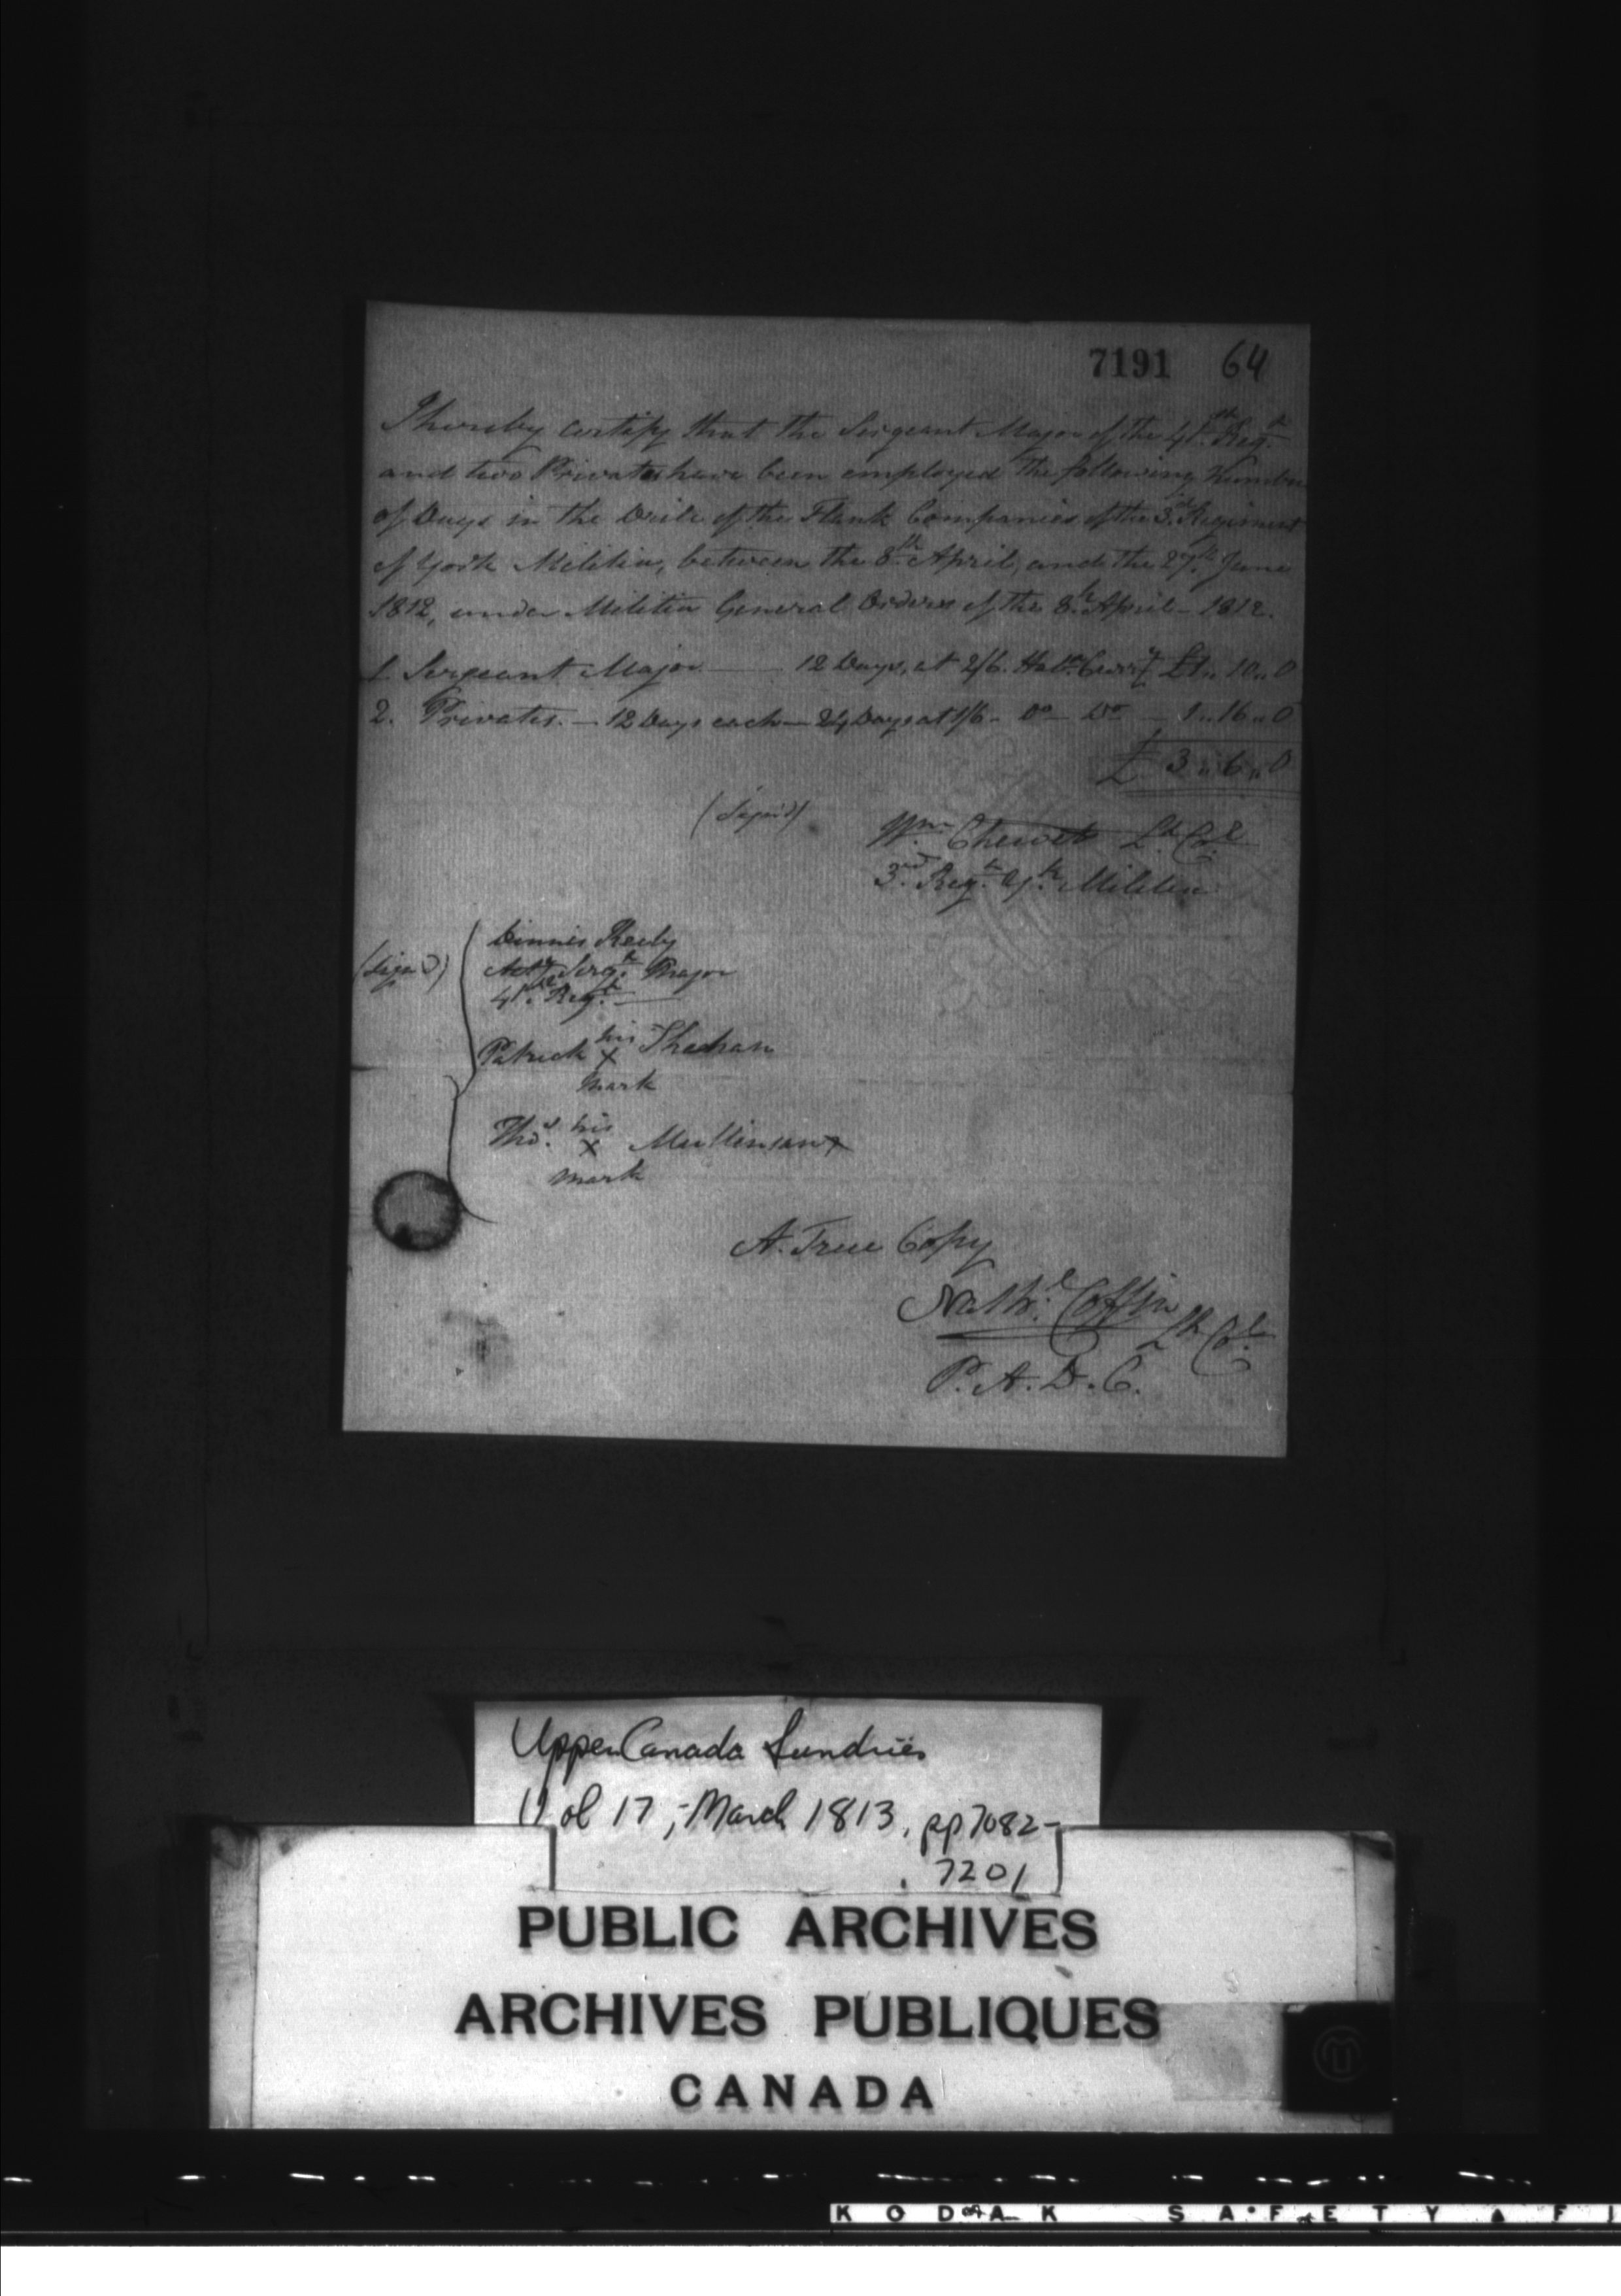 7191 64
I hereby certify that the Sergeant Major of the 41st Regt
and two Privates have been employed the following Number
of Days in the Drill of the Flank Companies of the 3d Regiment
of York Militia, between the 8th April, and the 27th June
1812, under Militia General Orders of the 8th April 1812.
1 Sergeant Major — 12 Days, at 2/6. Halx Curry £1,, 10,, 0
2. Privates. — 12 Days each — 24 Days at 1/6 - Do - Do - 1,, 16,, 0
£ 3,, 6,, 0
(Signd) Wm Chewett Lt Col
3rd Regt Yk Militia
(Signd)
Dinnis
Actg Sergt Major
41st Regt
Patrick his x Shechan
mark
Thos his x
mark
A. True Copy
Nathl. Coffin
Lt Col
P. A. D. C.
Upper Canada Sundries
Vol 17, - March 1813, pp 7082-
7201
PUBLIC ARCHIVES
ARCHIVES PUBLIQUES
CANADA
KODAK SAFETY FI